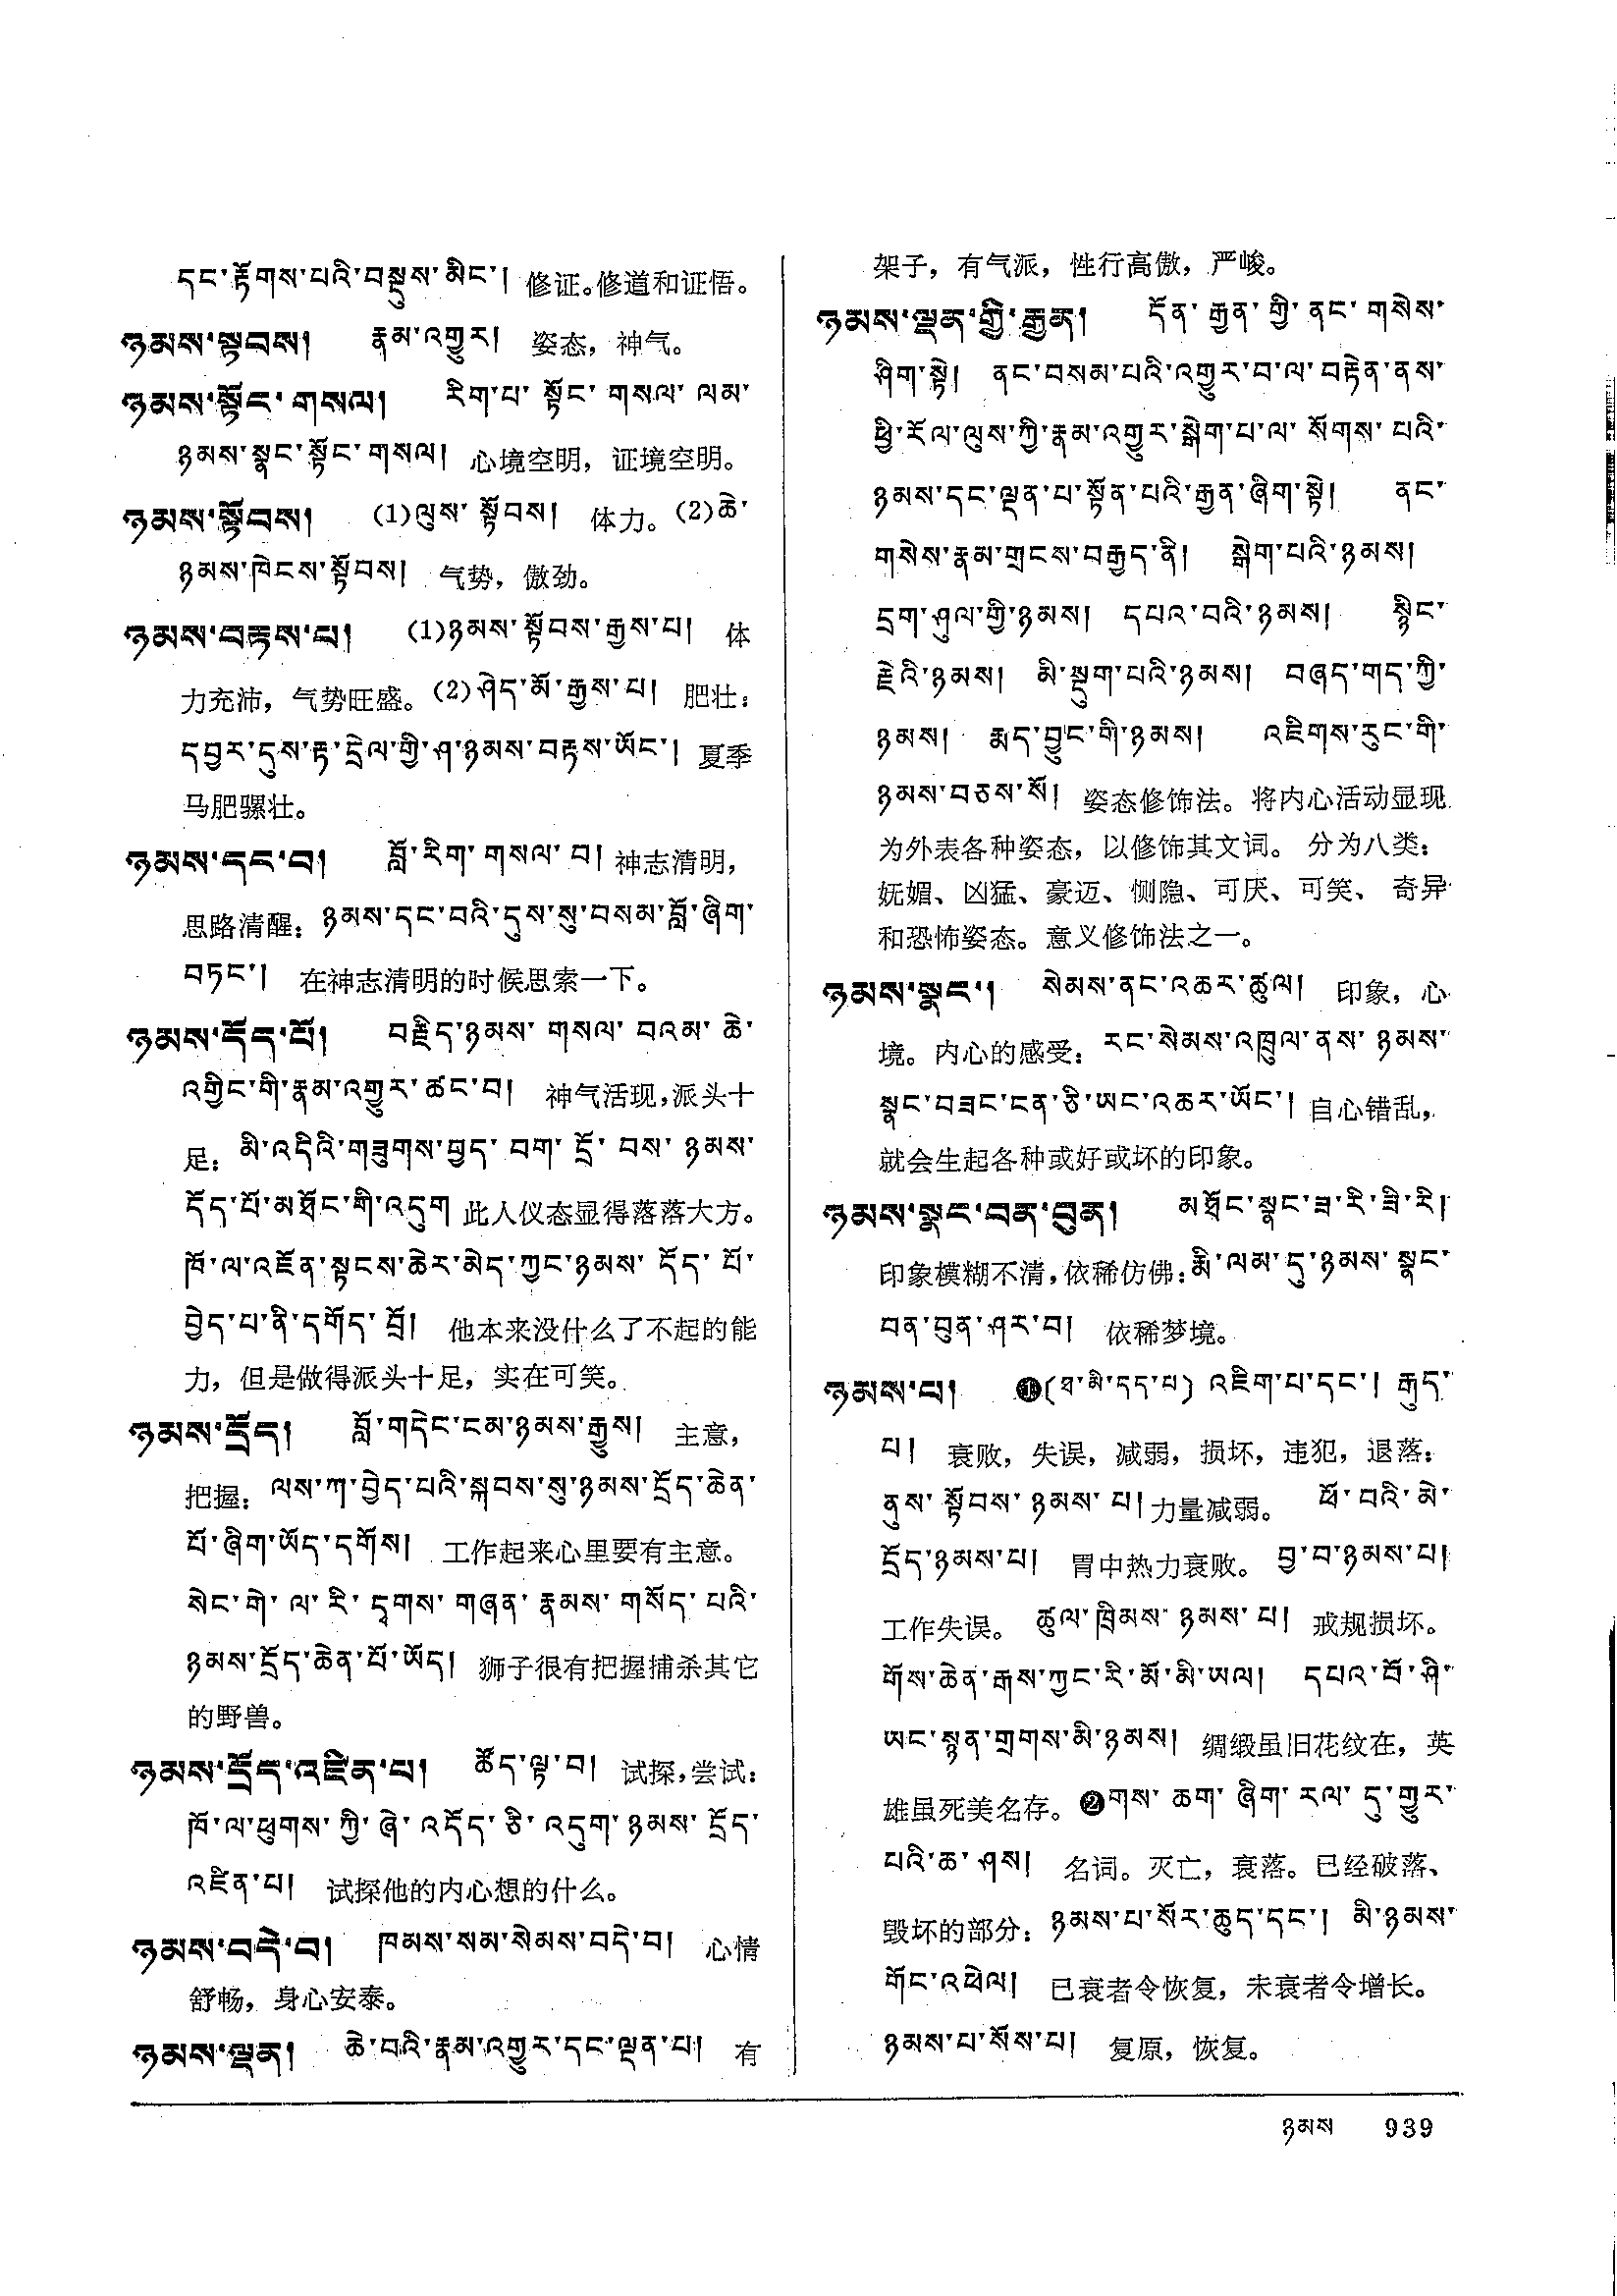 དང་རྟོགས་པའི་བསྡུས་མིང་། 修证。修道和证悟。
ཉམས་སྟབས། རྣམ་འགྱུར། 姿态，神气。
ཉམས་སྟོང་གསལ། རིག་པ་སྟོང་གསལ་ལམ་
ཉམས་སྣང་སྟོང་གསལ། 心境空明，证境空明。
ཉམས་སྟོབས། (1)ལུས་སྟོབས། 体力。(2)ཆེ་
ཉམས་ཁེངས་སྟོབས། 气势，傲劲。
ཉམས་བརྟས་པ། (1)ཉམས་སྟོབས་རྒྱས་པ། 体
力充沛，气势旺盛。(2)ཤེད་མོ་རྒྱས་པ། 肥壮：
དབྱར་དུས་རྟ་དྲེལ་གྱི་ཤ་ཉམས་བརྟས་ཡོང་། 夏季
马肥骡壮。
ཉམས་དང་བ། བློ་རིག་གསལ་བ། 神志清明，
思路清醒：ཉམས་དང་བའི་དུས་སུ་བསམ་བློ་ཞིག་
བཏང་། 在神志清明的时候思索一下。
ཉམས་དོད་པོ། བརྗིད་ཉམས་གསལ་བའམ་ཆེ་
འགྱིང་གི་རྣམ་འགྱུར་ཚང་བ། 神气活现，派头十
足：མི་འདིའི་གཟུགས་བྱད་བག་དྲོ་བས་ཉམས་
དོད་པོ་མཐོང་གི་འདུག 此人仪态显得落落大方。
ཁོ་ལ་འཇོན་སྟངས་ཆེར་མེད་ཀྱང་ཉམས་དོད་པོ་
བྱེད་པ་ནི་དགོད་བྲོ། 他本来没什么了不起的能
力，但是做得派头十足，实在可笑。
ཉམས་དྲོད། བློ་གདེང་ངམ་ཉམས་རྒྱུས། 主意，
把握：ལས་ཀ་བྱེད་པའི་སྐབས་སུ་ཉམས་དྲོད་ཆེན་
པོ་ཞིག་ཡོད་དགོས། 工作起来心里要有主意。
སེང་གེ་ལ་རི་དྭགས་གཞན་རྣམས་གསོད་པའི་
ཉམས་དྲོད་ཆེན་པོ་ཡོད། 狮子很有把握捕杀其它
的野兽。
ཉམས་དྲོད་འཛིན་པ། ཚོད་ལྟ་བ། 试探，尝试：
ཁོ་ལ་ཕུགས་ཀྱི་ཞེ་འདོད་ཅི་འདུག་ཉམས་དྲོད་
འཛིན་པ། 试探他的内心想的什么。
ཉམས་བདེ་བ། ཁམས་སམ་སེམས་བདེ་བ། 心情
舒畅，身心安泰。
ཉམས་ལྡན། ཆེ་བའི་རྣམ་འགྱུར་དང་ལྡན་པ། 有
架子，有气派，性行高傲，严峻。
ཉམས་ལྡན་གྱི་རྒྱན། དོན་རྒྱན་གྱི་ནང་གསེས་
ཤིག་སྟེ། ནང་བསམ་པའི་འགྱུར་བ་ལ་བརྟེན་ནས་
ཕྱི་རོལ་ལུས་ཀྱི་རྣམ་འགྱུར་སྒེག་པ་ལ་སོགས་པའི་
ཉམས་དང་ལྡན་པ་སྟོན་པའི་རྒྱན་ཞིག་སྟེ། ནང་
གསེས་རྣམ་གྲངས་བརྒྱད་ནི། སྒེག་པའི་ཉམས།
དྲག་ཤུལ་གྱི་ཉམས། དཔའ་བའི་ཉམས། སྙིང་
རྗེའི་ཉམས། མི་སྡུག་པའི་ཉམས། བཞད་གད་ཀྱི་
ཉམས། རྨད་བྱུང་གི་ཉམས། འཇིགས་རུང་གི་
ཉམས་བཅས་སོ། 姿态修饰法。将内心活动显现
为外表各种姿态，以修饰其文词。分为八类：
妩媚、凶猛、豪迈、恻隐、可厌、可笑、奇异
和恐怖姿态。意义修饰法之一。
ཉམས་སྣང་། སེམས་ནང་འཆར་ཚུལ། 印象，心
境。内心的感受：རང་སེམས་འཁྲུལ་ནས་ཉམས་
སྣང་བཟང་ངན་ཅི་ཡང་འཆར་ཡོང་། 自心错乱，
就会生起各种或好或坏的印象。
ཉམས་སྣང་བན་བུན། མཐོང་སྣང་ཟ་རི་ཟི་རི།
印象模糊不清，依稀仿佛：རྨི་ལམ་དུ་ཉམས་སྣང་
བན་བུན་ཤར་བ། 依稀梦境。
ཉམས་པ། ❶(ཐ་མི་དད་པ) འཇིག་པ་དང་། རྒུད་
པ། 衰败，失误，减弱，损坏，违犯，退落：
ནུས་སྟོབས་ཉམས་པ། 力量减弱。 ཕོ་བའི་མེ་
དྲོད་ཉམས་པ། 胃中热力衰败。 བྱ་བ་ཉམས་པ།
工作失误。 ཚུལ་ཁྲིམས་ཉམས་པ། 戒规损坏。
གོས་ཆེན་རྒས་ཀྱང་རི་མོ་མི་ཡལ། དཔའ་བོ་ཤི་
ཡང་སྙན་གྲགས་མི་ཉམས། 绸缎虽旧花纹在，英
雄虽死美名存。❷གས་ཆག་ཞིག་རལ་དུ་གྱུར་
པའི་ཆ་ཤས། 名词。灭亡，衰落。已经破落、
毁坏的部分：ཉམས་པ་སོར་ཆུད་དང་། མི་ཉམས་
གོང་འཕེལ། 已衰者令恢复，未衰者令增长。
ཉམས་པ་སོས་པ། 复原，恢复。
ཉམས 939